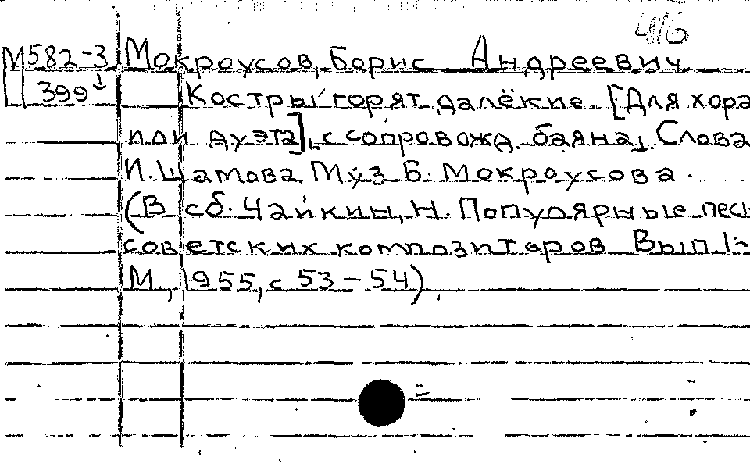 416
М582-3 Мокроусов, Борис Андреевич
399 Костры горят далёкие. [Для хора
или дуэта], с сопровожд. баяна, Слова
И. Шамова. Муз. Б. Мокроусова.
(В сб. Чайкин, Н. Популярные песн
советских композиторов Вып 1-
М., 1955, с 53-54).